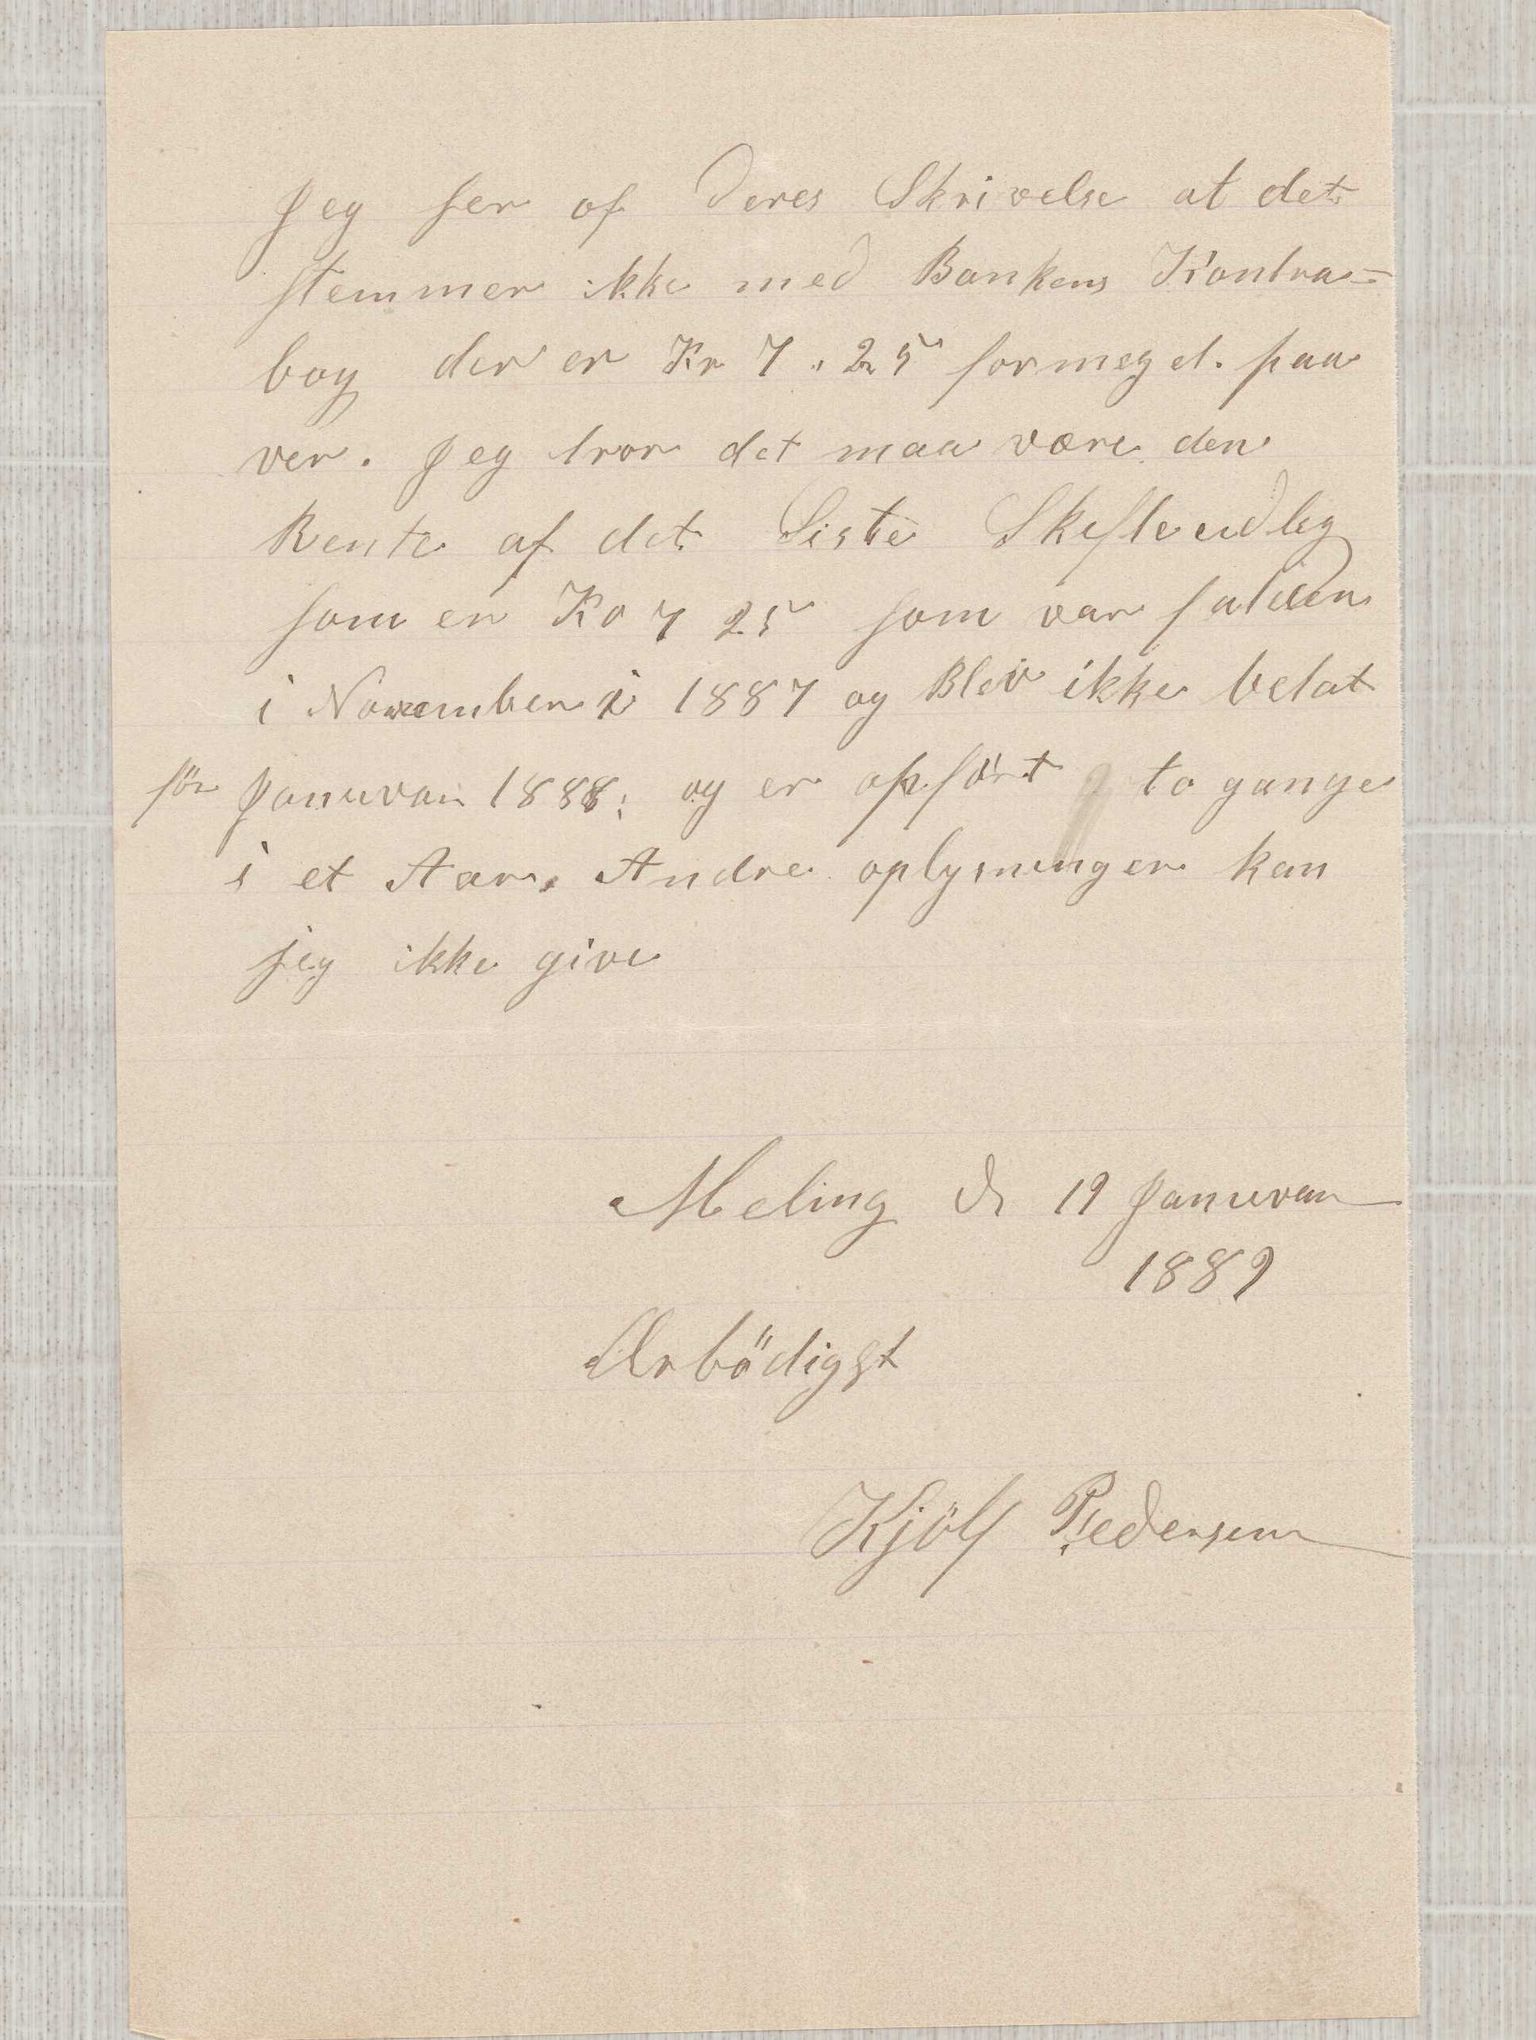 Jeg ser af Deres Skrivelse at det
stemmer ikke med Bankens Kontra=
bog der er Kr 7.25 formeget. paa
ver. Jeg tror det maa være den
Rente af det Siste Skifteudleg
som er Kr 7 25 som var falden
i November i 1887 og Blev ikke belat
för Januvar 1888; og er opfört to gange
i et Aar. Andre oplysninger kan
jeg ikke give
Meling d 19 Januvar
1889
Ærbödigst
Kjölf Pedersen